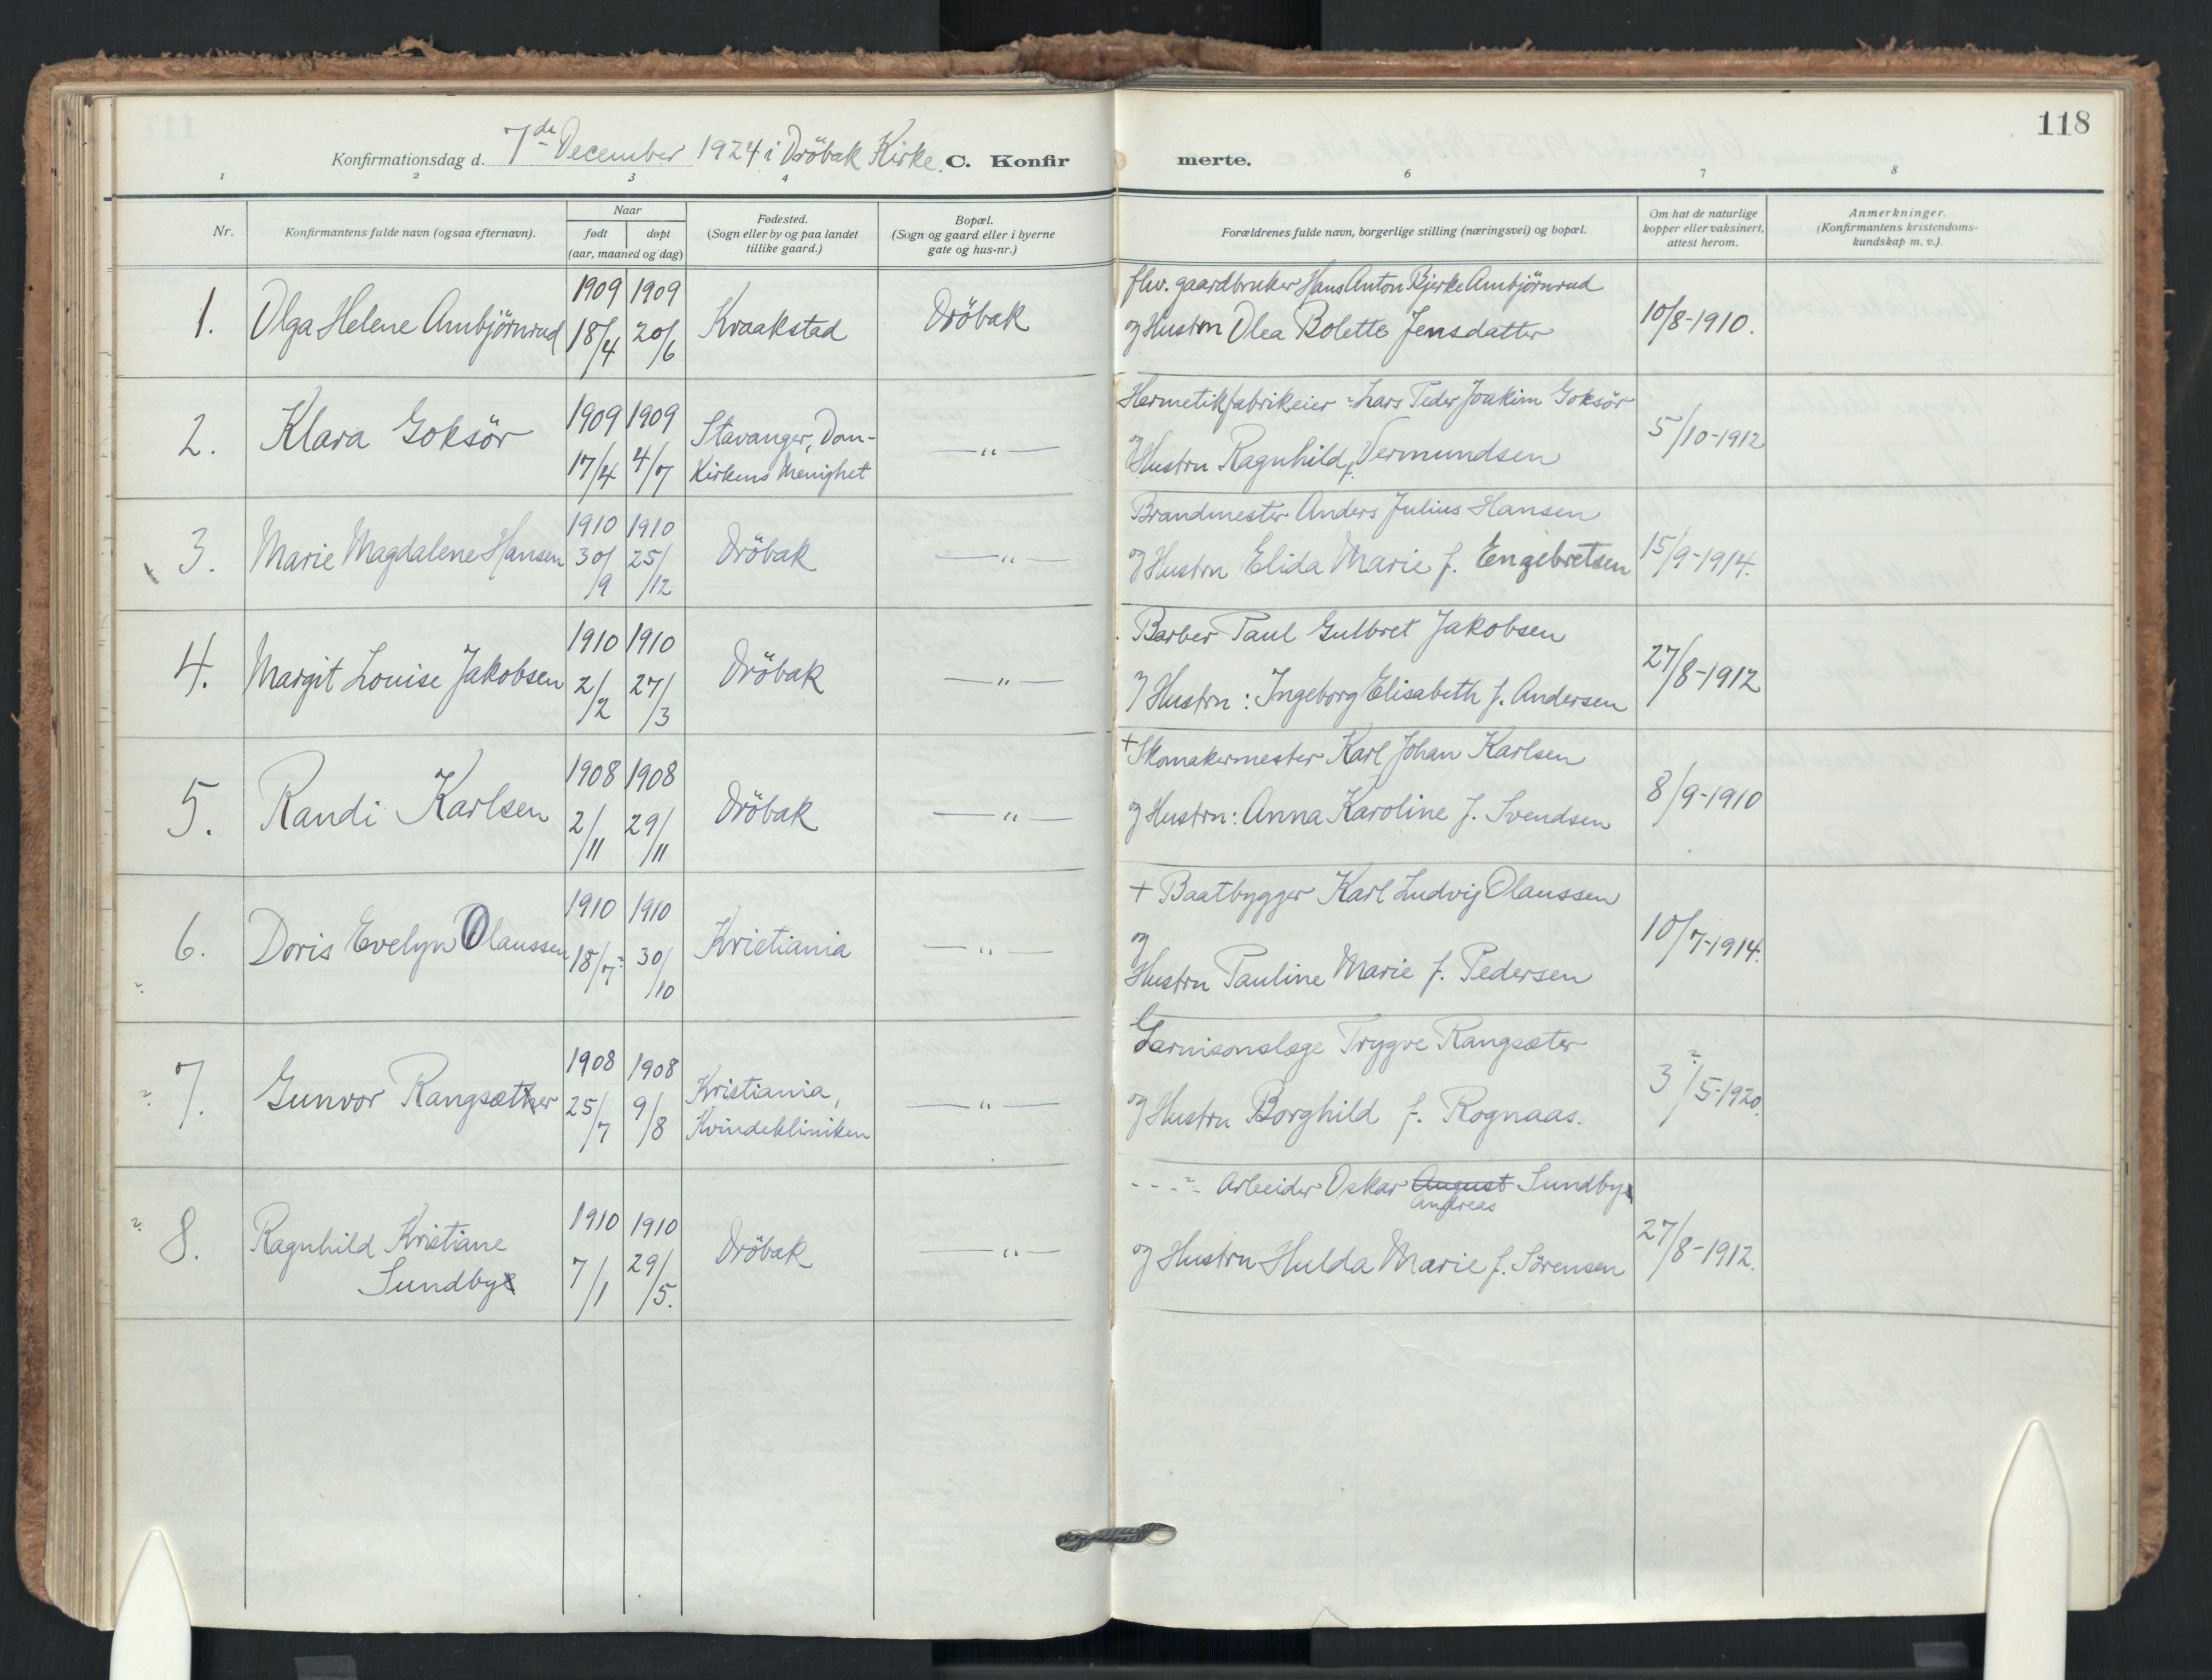 118
Konfirmationsdag d. 7de December 1924 i Dröbak Kirke. C. Konfir merte.
1 2 3 4 6 7 8
Nr.
Konfirmantens fulde navn (ogsaa efternavn).
Naar
født døpt
(aar, maaned og dag)
Fødested.
(Sogn eller by og paa landet
tillike gaard.)
Bopæl.
(Sogn og gaard eller i byerne
gate og hus-nr.)
Forældrenes fulde navn, borgerlige stilling (næringsvei) og bopæl.
Om hat de naturlige
kopper eller vaksinert,
attest herom.
Anmerkninger.
(Konfirmantens kristendoms-
kundskap m. v.).
1. Olga Helene Ambjörnrud
1909 18/4
1909 20/6
Kraakstad
Dröbak
fhv. gaardbruker Hans Anton Bjerke Ambjörnrud
og Hustru Olea Bolette Jensdatter
10/8-1910.
2. Klara Goksör
1909 17/4
1909 4/7
Stavanger, Dom-
Kirkens Menighet
— " —
Hermetikfabrikeier Lars Peder Joakim Goksör
og Hustru Ragnhild f. Vermundsen
5/10-1912
3. Marie Magdalene Hansen
1910 30/9
1910 25/12
Dröbak
— " —
Brandmester Anders Julius Hansen
og Hustru Elida Marie f. Engebretsen
15/9-1914.
4. Margit Louise Jakobsen
1910 2/2
1910 27/3
Dröbak
— " —
Barber Paul Gulbret Jakobsen
og Hustru: Ingeborg Elisabeth f. Andersen
27/8-1912
5. Randi Karlsen
1908 2/11
1908 29/11
Dröbak
— " —
+ Skomakermester Karl Johan Karlsen
og Hustru: Anna Karoline f. Svendsen
8/9-1910
6. Doris Evelyn Olaussen
1910 18/7
1910 30/10
Kristiania
— " —
+ Baatbygger Karl Ludvig Olaussen
og
Hustru Pauline Marie f. Pedersen
10/7-1914.
7. Gunvor Rangsæter
1908 25/7
1908 9/8
Kristiania,
Kvindekliniken
— " —
Garnisonslæge Trygve Rangsæter
og Hustru Borghild f. Rognaas.
3/5-1920.
8. Ragnhild Kristiane
Sundby
1910 7/1
1910 29/5.
Dröbak
— " —
Arbeider Oskar August Sundby
Andreas
og Hustru Hulda Marie f. Sörensen
27/8-1912.